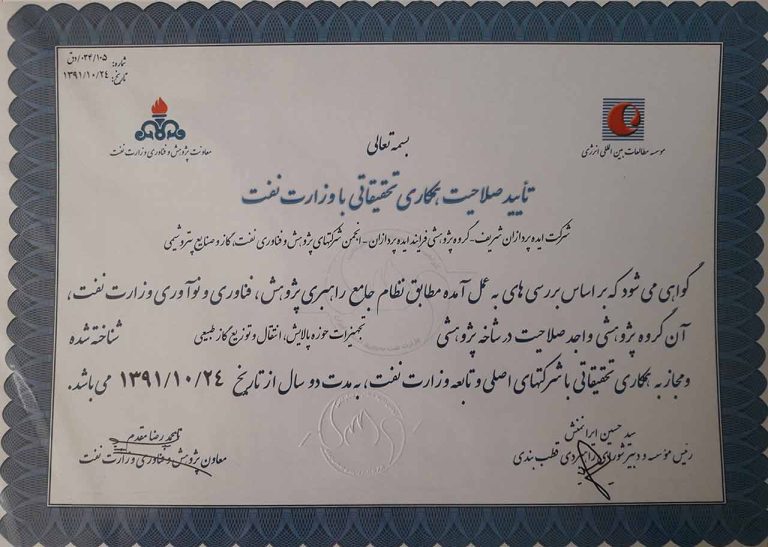 شماره: ۰۲۴/۱۰۵/دق
تاریخ: ۱۳۹۱/۱۰/۲۴
معاونت پژوهش و فناوری وزارت نفت
موسسه مطالعات بین المللی انرژی
بسمه تعالی
تأیید صلاحیت همکاری تحقیقاتی با وزارت نفت
شرکت ایده پردازان شریف - گروه پژوهشی فرایند ایده پردازان - انجمن شرکتهای پژوهش و فناوری نفت، گاز و صنایع پتروشیمی
گواهی می شود که بر اساس بررسی های به عمل آمده مطابق نظام جامع راهبری پژوهش، فناوری و نوآوری وزارت نفت،
آن گروه پژوهشی واجد صلاحیت در شاخه پژوهشی تجهیزات حوزه پالایش، انتقال و توزیع گاز طبیعی شناخته شده
و مجاز به همکاری تحقیقاتی با شرکتهای اصلی و تابعه وزارت نفت، به مدت دو سال از تاریخ ۱۳۹۱/۱۰/۲۴ می باشد.
سید حسین ایرانمنش
رئیس مؤسسه و دبیر شورای راهبردی قطب بندی
محمد رضا مقدم
معاون پژوهش و فناوری وزارت نفت